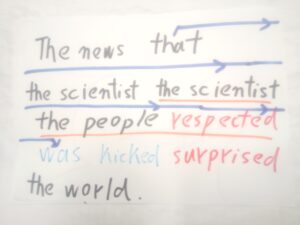 The news that
the scientist the scientist
the people respected
was kicked surprised
the world.